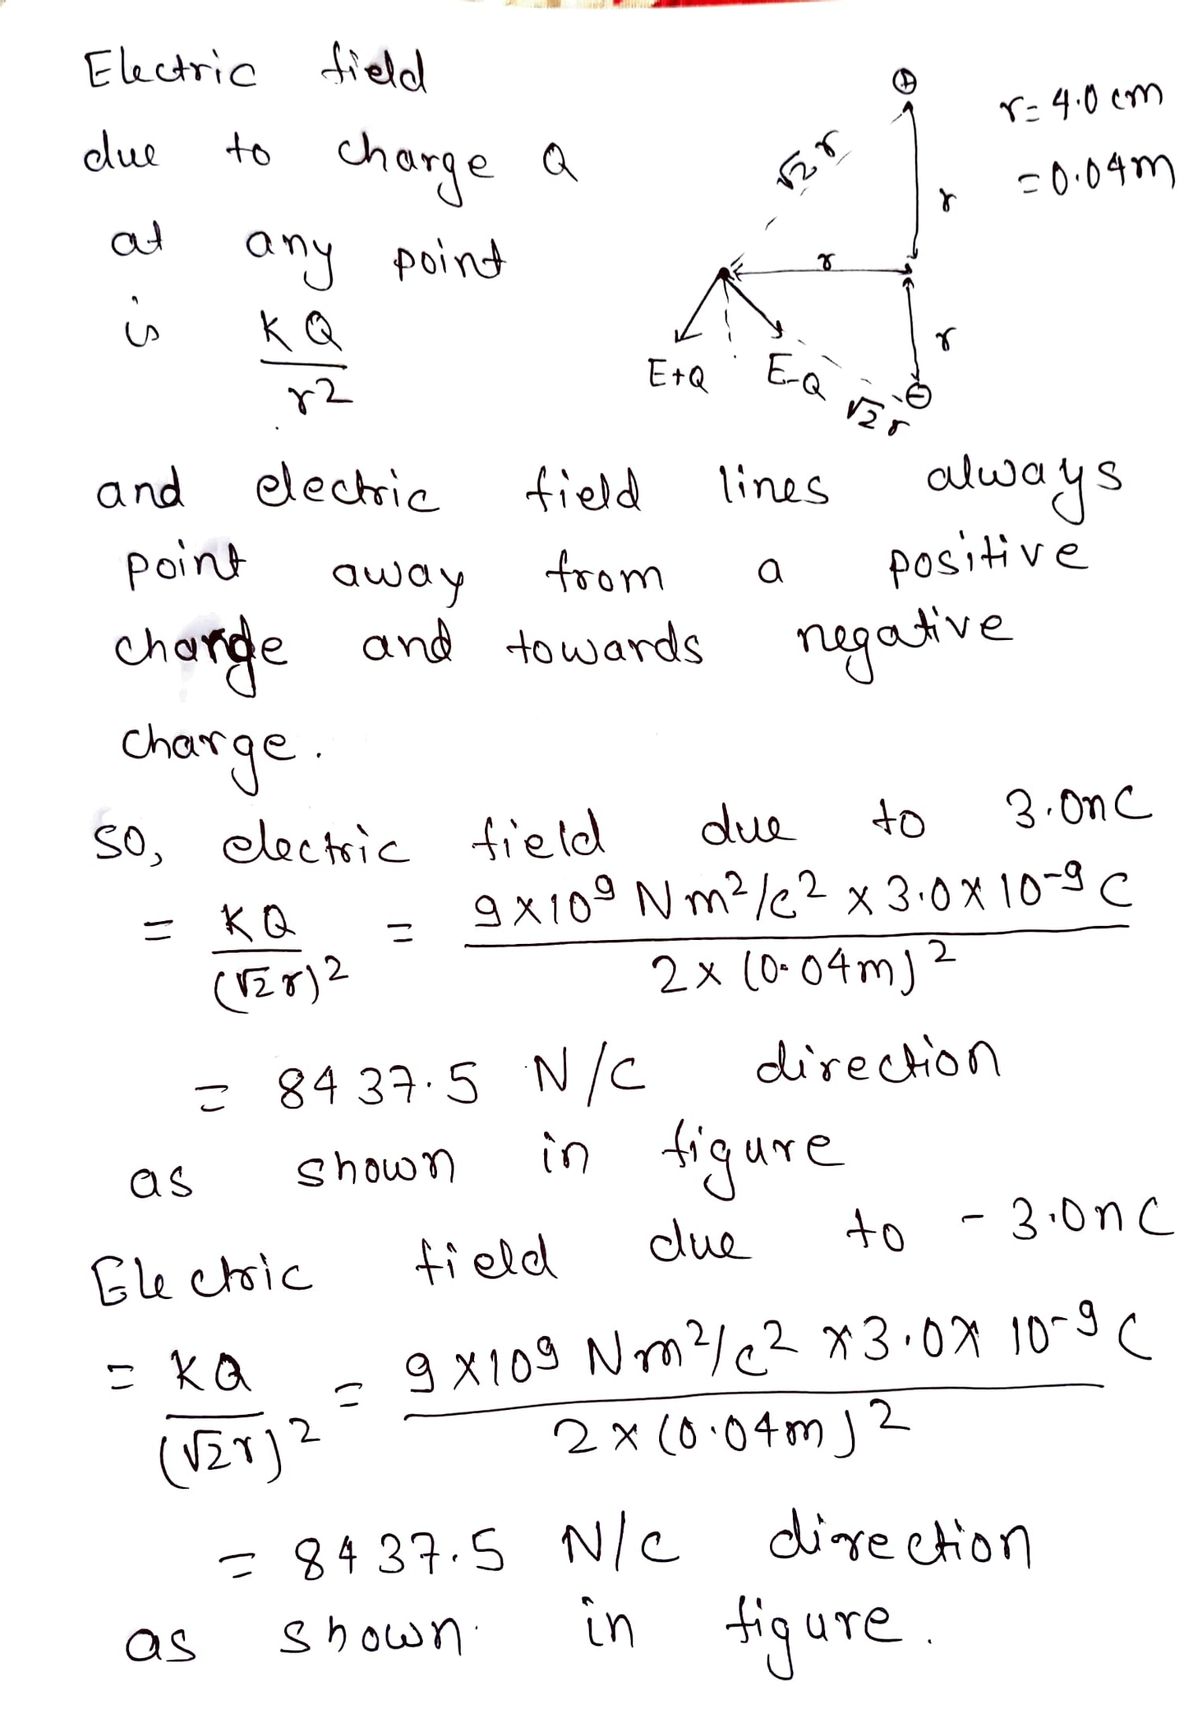 Electric field
due to charge Q
at any point
is KQ
r2
⊕
r= 4.0 cm
=0.04m
√2 r
r
r
r
E+Q
E-Q
√2 r
⊖
and electric field lines always
point away from a positive
charge and towards negative
charge.
so, electric field due to 3.0nC
= KQ = 9×10⁹ Nm²/c² × 3.0×10⁻⁹ C
(√2r)² 2× (0.04m)²
= 8437.5 N/C direction
as shown in figure
Electric field due to -3.0nC
= KQ = 9×10⁹ Nm²/c² ×3.0× 10⁻⁹ C
(√2r)² 2×(0.04m)²
= 8437.5 N/C direction
as shown in figure.